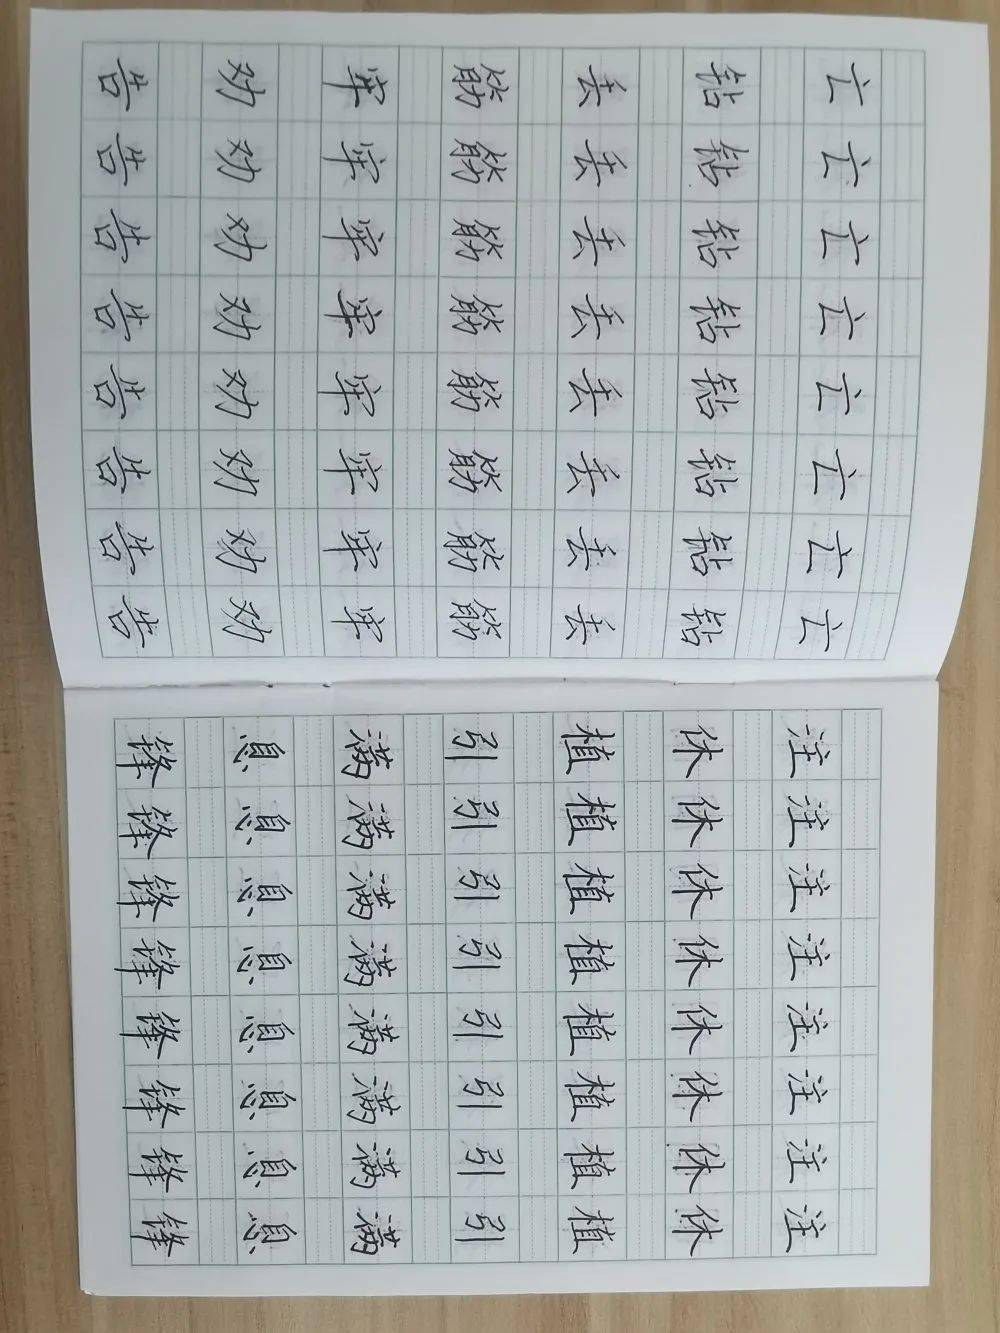 亡亡亡亡亡亡亡亡
钻钻钻钻钻钻钻钻
丢丢丢丢丢丢丢丢
筋筋筋筋筋筋筋筋
牢牢牢牢牢牢牢牢
劝劝劝劝劝劝劝劝
告告告告告告告告
注注注注注注注注
休休休休休休休休
植植植植植植植植
引引引引引引引引
满满满满满满满满
息息息息息息息息
锋锋锋锋锋锋锋锋